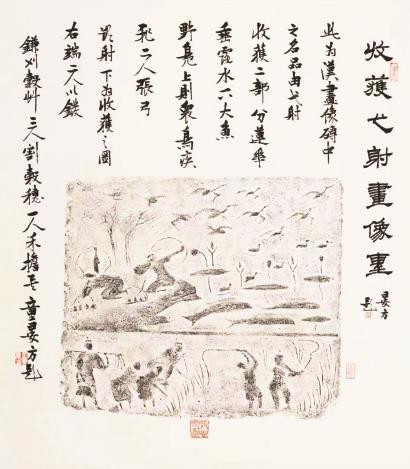 收穫弋射畫像
晏方
題
此为漢畫像磚中
之名品由弋射
收穫二部分蓮華
垂露水下大魚
野鳧上則衆鳥疾
飛二人張弓
射下为收穫之圖
右端二人以鐵
鎌刈穀艸三人割穀穗一人禾擔童晏方題